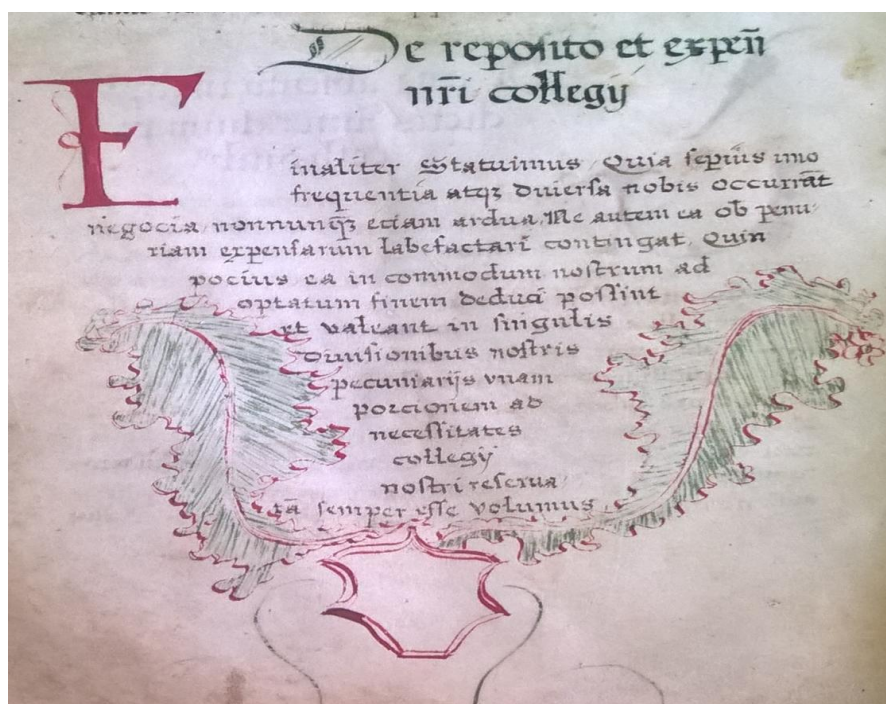 De reposito et expen̄
nr̄i collegij
Finaliter Statuimus Quia sepius imo
frequentia atqꝫ diuersa nobis occurrāt
negocia nonnunqꝫ eciam ardua. Ne autem ea ob penu
riam expensarum labefactari contingat, Quin
pocius ea in commodum nostrum ad
optatum finem deduci possint
et valeant in singulis
diuisionibus nostris
pecuniarijs vnam
porcionem ad
necessitates
collegij
nostri reserua
tā semper esse volumus